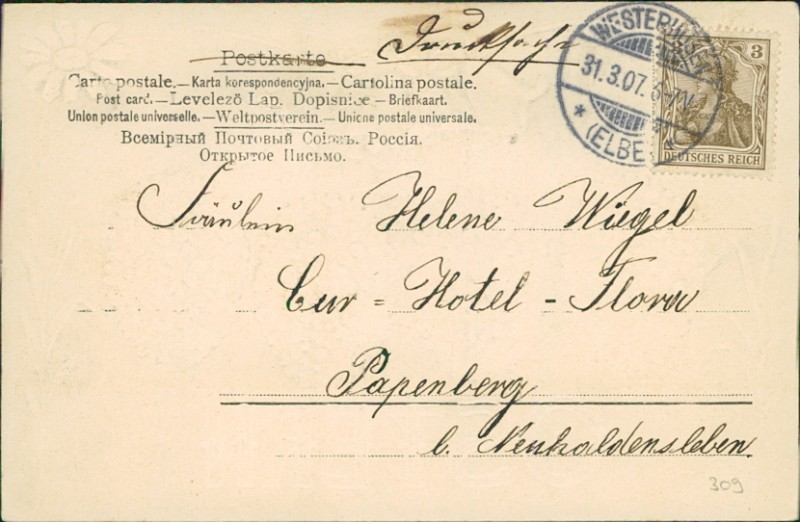 Postkarte Drucksache
Carte postale. — Karta korespondencyjna. — Cartolina postale.
Post card. — Levelező Lap. Dopisnice — Briefkaart.
Union postale universelle. — Weltpostverein. — Unione postale universale.
Всемірный Почтовый Союзъ. Россія.
Открытое Письмо.
31.3.07.
* (ELBE)
3
DEUTSCHES REICH
Fräulein Helene Wiegel
Cur = Hotel - Flora
Papenberg
b. Neuhaldensleben.
309